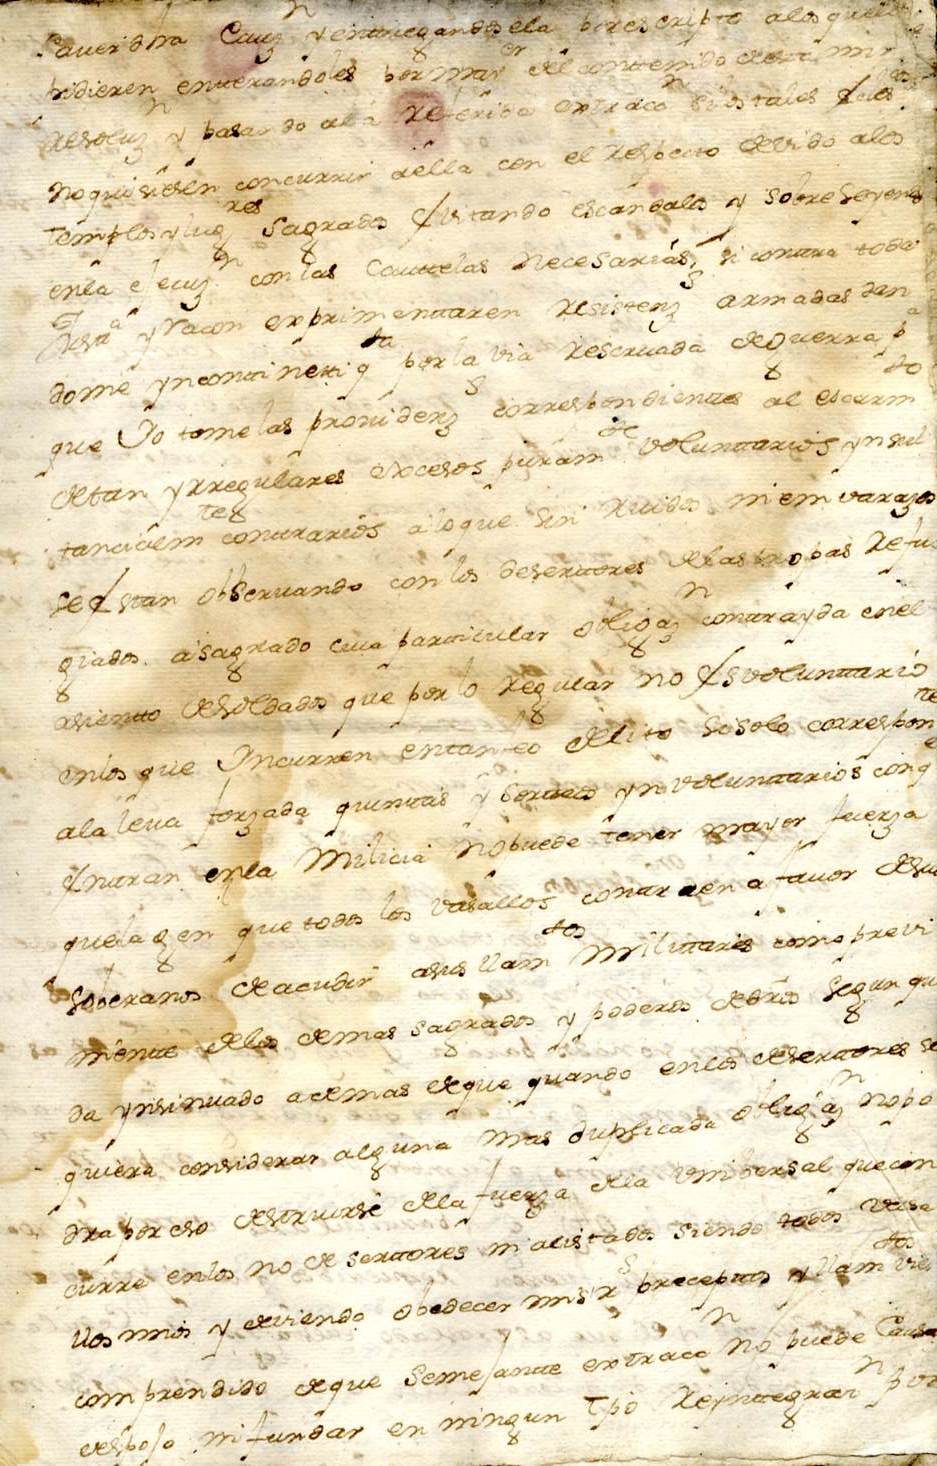 Caucion y entregandosela por escripto a los que la
pidieren enterandoles por mayor del contenido de esta mi r
resoluzn y pasando a la referida extraccn si los tales
no quisiesen concurrir a ella con el respecto devido a los
templos y lugres sagrados evitando escandalos y sobreseyens
en la ejecuzn con las cauttelas necesarias, si contra toda
Justa y racon exprimenttaren resistenzs armadas dan
dome yncontinetti qta por la via reservada de guerra pa
que Yo tome las providenzs correspondienttes al escarmto
de tan yrregulares excesos puramte voluntarios y
contrarios a lo que sin ruidos ni emvarazos
se estan observando con los desertores de las tropas refu
giados a sagrado cuia particular obligazn contrayda en el
asientto de soldados que por lo regular no es voluntario
en los que Yncurren en tan feo delito
a la leva forzada quinttas y sorteos ynvoluntarios con q
entran en la Milicia no puede tener mayor fuerza
que la gen que todos los vasallos contraen a favor de sus
soberanos de acudir a sus llamtos militares como previ
mente de los demas sagrados y poderos dros segun que
da ynsinuado ademas de que quando en los desertores se
quiera considerar alguna mas duplicada obligazn no po
dra por eso destruirse de la fuerza de la universal que con
curre en los no desertores ni alistados siendo todos vasa
llos mios y deviendo obedecer mis rs preceptos y llamtos
comprendido de que semejante extraccn no puede causar
despojo ni fundar en ningun tpo reyntegrazn por